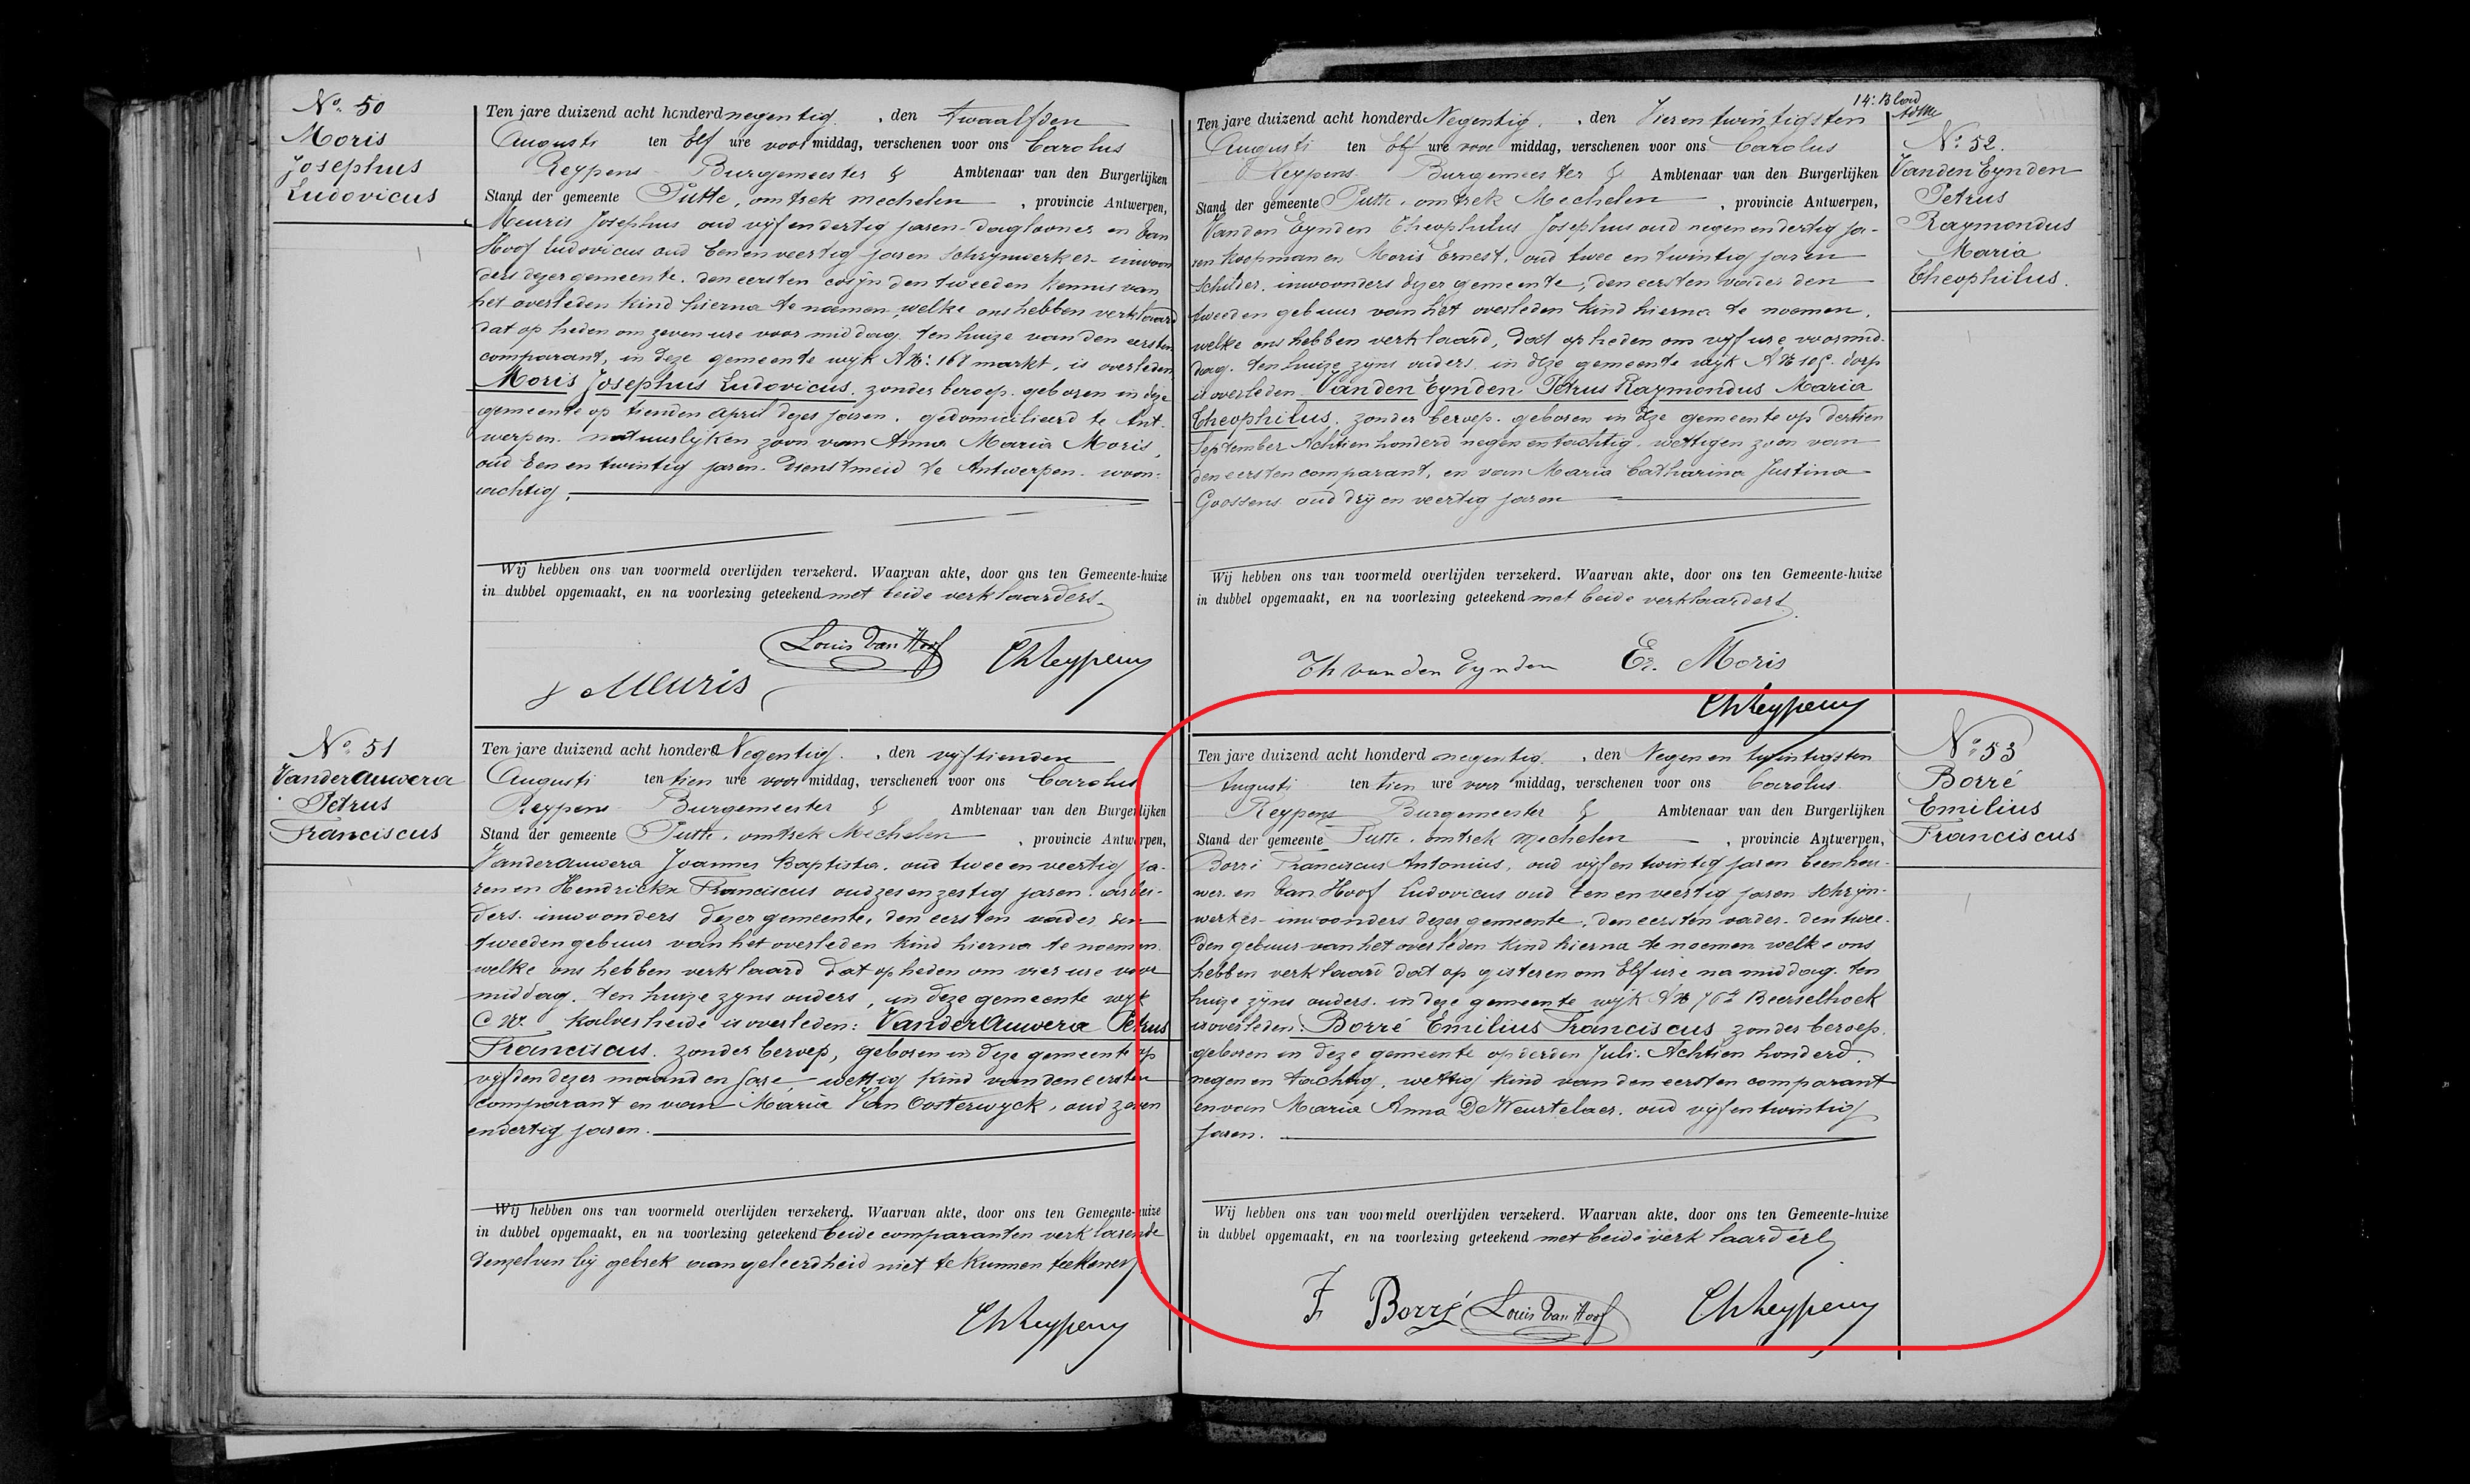 Nº 50
Moris
Josephus
Ludovicus
Ten jare duizend acht honderd negentig , den twaalfden
Augusti ten Elf ure voor middag, verschenen voor ons Carolus
Reypens Burgemeester & Ambtenaar van den Burgerlijken
Stand der gemeente Putte, omtrek mechelen , provincie Antwerpen,
Meuris Josephus oud vijf en dertig jaren daglooner en Van
Hoof Ludovicus oud Een en veertig jaren schrijnwerker inwoon
ders dezer gemeente. den eersten cosijn den tweeden kennis van
het overleden kind hierna te noemen, welke ons hebben verklaard
dat op heden om zeven ure voor middag ten huize van den eersten
comparant, in deze gemeente wijk A Nº: 167 markt, is overleden
Moris Josephus Ludovicus. zonder beroep. geboren in deze
gemeente op tienden April dezes jaren. gedomicilieerd te Ant-
werpen. natuurlijken zoon van Anna Maria Moris,
oud Een en twintig jaren. Dienstmeid te Antwerpen woon-
achtig.
Wij hebben ons van voormeld overlijden verzekerd. Waarvan akte, door ons ten Gemeente-huize
in dubbel opgemaakt, en na voorlezing geteekend met beide verklaarders.
Louis Van Hoof ChReypens
J Meuris
Nº 51
Vanderauwera
Petrus
Franciscus
Ten jare duizend acht honderd Negentig. , den vijftienden
Augusti ten tien ure voor middag, verschenen voor ons Carolus
Reypens Burgemeester & Ambtenaar van den Burgerlijken
Stand der gemeente Putte, omtrek Mechelen , provincie Antwerpen,
Vanderauwera Joannes Baptista, oud twee en veertig ja-
ren en Hendrickx Franciscus oud zes en zestig jaren. arbei-
ders. inwoonders dezer gemeente, den eersten vader den
tweeden gebuur van het overleden kind hierna te noemen.
welke ons hebben verklaard dat op heden om vier ure voor
middag. ten huize zyns ouders, in deze gemeente wyk
C Nº. Kalverheide is overleden: Vanderauwera Petrus
Franciscus. zonder beroep, geboren in deze gemeente op
vijfden dezer maand en jare, wettig kind van den eersten
comparant en van Maria Van Oosterwyck, oud zeven
en dertig jaren.
Wij hebben ons van voormeld overlijden verzekerd. Waarvan akte, door ons ten Gemeente-huize
in dubbel opgemaakt, en na voorlezing geteekend beide comparanten verklarende
denzelven bij gebrek aan geleerdheid niet te kunnen teekenen.
ChReypens
14e Blad
Ten jare duizend acht honderd Negentig. , den Vierentwintigsten
Augusti ten Elf ure voor middag, verschenen voor ons Carolus
Reypens Burgemeester & Ambtenaar van den Burgerlijken
Stand der gemeente Putte, omtrek Mechelen , provincie Antwerpen,
Vanden Eynden Theophilus Josephus oud negen en dertig ja-
ren koopman en Moris Ernest, oud twee en twintig jaren
schilder. inwoonders dezer gemeente, den eersten vader den
tweeden gebuur van het overleden kind hierna te noemen,
welke ons hebben verklaard, dat op heden om vijf ure voormid-
dag. ten huize zyns ouders. in deze gemeente wyk A Nº 105c. dorp
is overleden Vanden Eynden Petrus Raymondus Maria
Theophilus. zonder beroep. geboren in deze gemeente op dertien
September Achtien honderd negen en tachtig, wettigen zoon van
den eersten comparant, en van Maria Catharina Justina
Goossens oud drij en veertig jaren
Wij hebben ons van voormeld overlijden verzekerd. Waarvan akte, door ons ten Gemeente-huize
in dubbel opgemaakt, en na voorlezing geteekend met beide verklaarders
Th vanden Eynden Er. Moris
ChReypens
Nº 52.
Vanden Eynden
Petrus
Raymondus
Maria
Theophilus.
Ten jare duizend acht honderd negentig. , den Negen en twintigsten
Augusti ten tien ure voor middag, verschenen voor ons Carolus
Reypens Burgemeester & Ambtenaar van den Burgerlijken
Stand der gemeente Putte, omtrek mechelen , provincie Antwerpen,
Borré Franciscus Antonius, oud vijf en twintig jaren beenhou-
wer. en Van Hoof Ludovicus oud Een en veertig jaren schrijn-
werker inwoonders dezer gemeente, den eersten vader. den twee-
den gebuur van het overleden kind hierna te noemen welke ons
hebben verklaard dat op gisteren om Elf ure na middag. ten
huize zyns ouders. in deze gemeente wijk A Nº Beerselhoek
is overleden: Borré Emilius Franciscus zonder beroep.
geboren in deze gemeente op derden Juli. Achtien honderd
negen en tachtig, wettig kind van den eersten comparant
en van Maria Anna De Weurtelaer. oud vijf en twintig
jaren.
Wij hebben ons van voormeld overlijden verzekerd. Waarvan akte, door ons ten Gemeente-huize
in dubbel opgemaakt, en na voorlezing geteekend met beide verklaarders
F Borré Louis Van Hoof ChReypens
Nº 53
Borré
Emilius
Franciscus